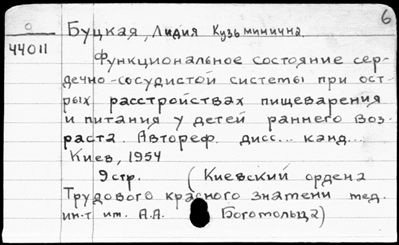 6
О
44011
Буцкая, Лидия Кузьминична.
Функциональное состояние сер-
дечно-сосудистой системы при ост-
рых расстройствах пищеварения
и питания у детей раннего воз-
раста. Автореф. дисс... канд...
Киев, 1954
9 стр. (Киевский ордена
Трудового красного знамени мед.
ин-т им. А.А. Богомольца)